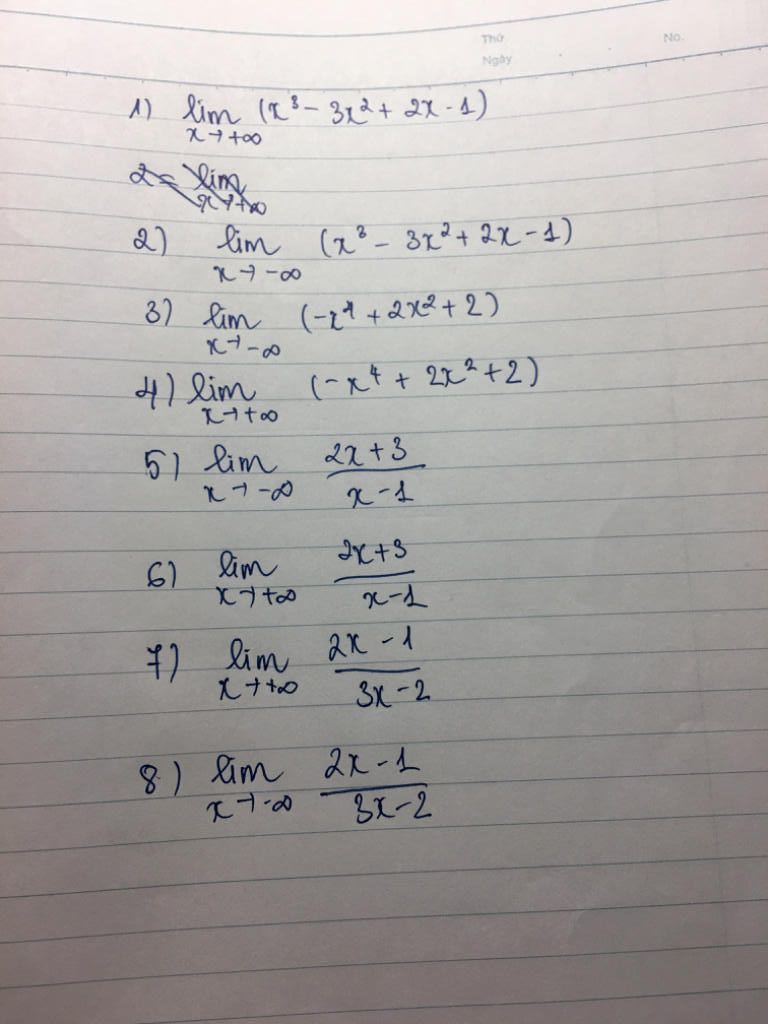 Thứ No.
Ngày
1) lim (x³ - 3x² + 2x - 1)
x→+∞
2 = lim
x→+∞
2) lim (x³ - 3x² + 2x - 1)
x→-∞
3) lim (-x⁴ + 2x² + 2)
x→-∞
4) lim (-x⁴ + 2x² + 2)
x→+∞
5) lim 2x+3
x→-∞ x-1
6) lim 2x+3
x→+∞ x-1
7) lim 2x-1
x→+∞ 3x-2
8) lim 2x-1
x→-∞ 3x-2